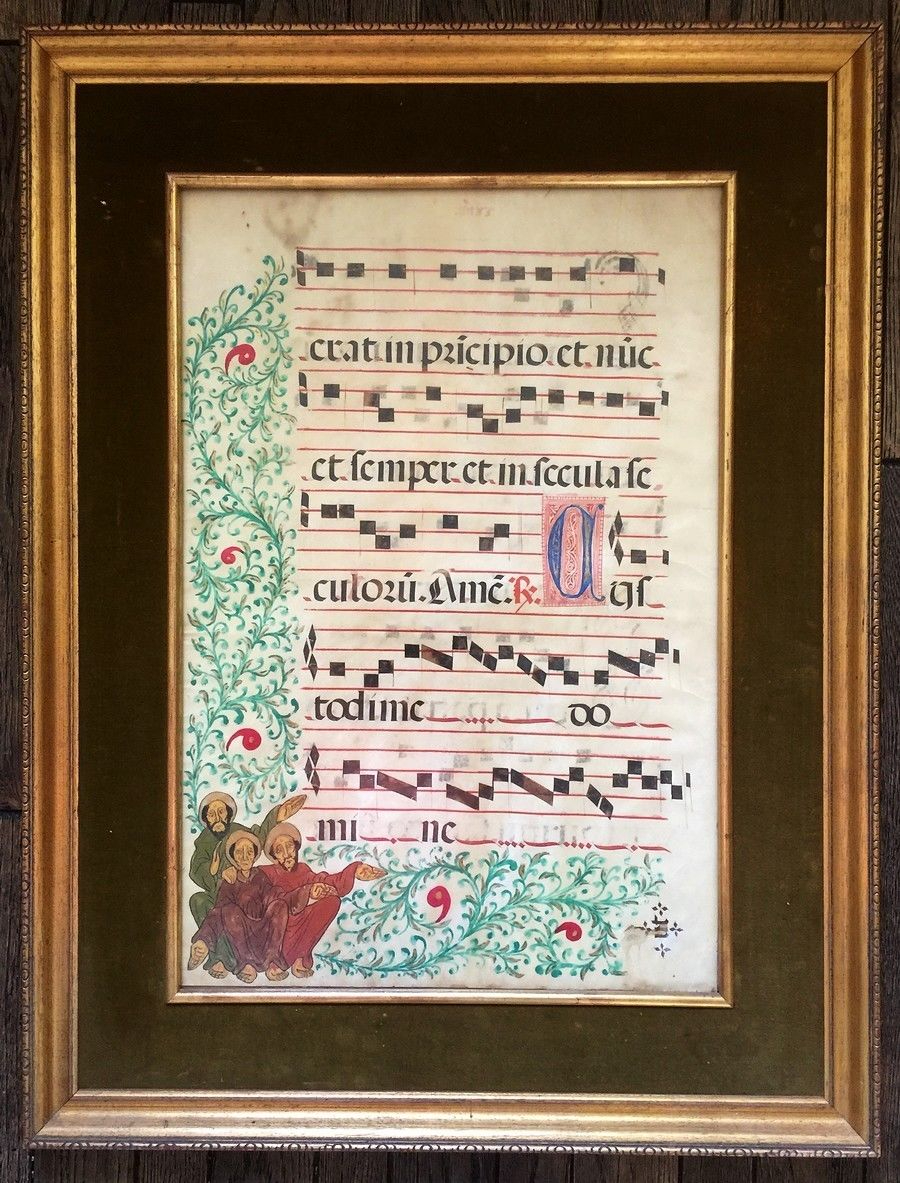 erat in prīcipio et nūc
et ſemper et in ſecula ſe
culorū. Amē. ℟. C uſ
todi me do
mi ne